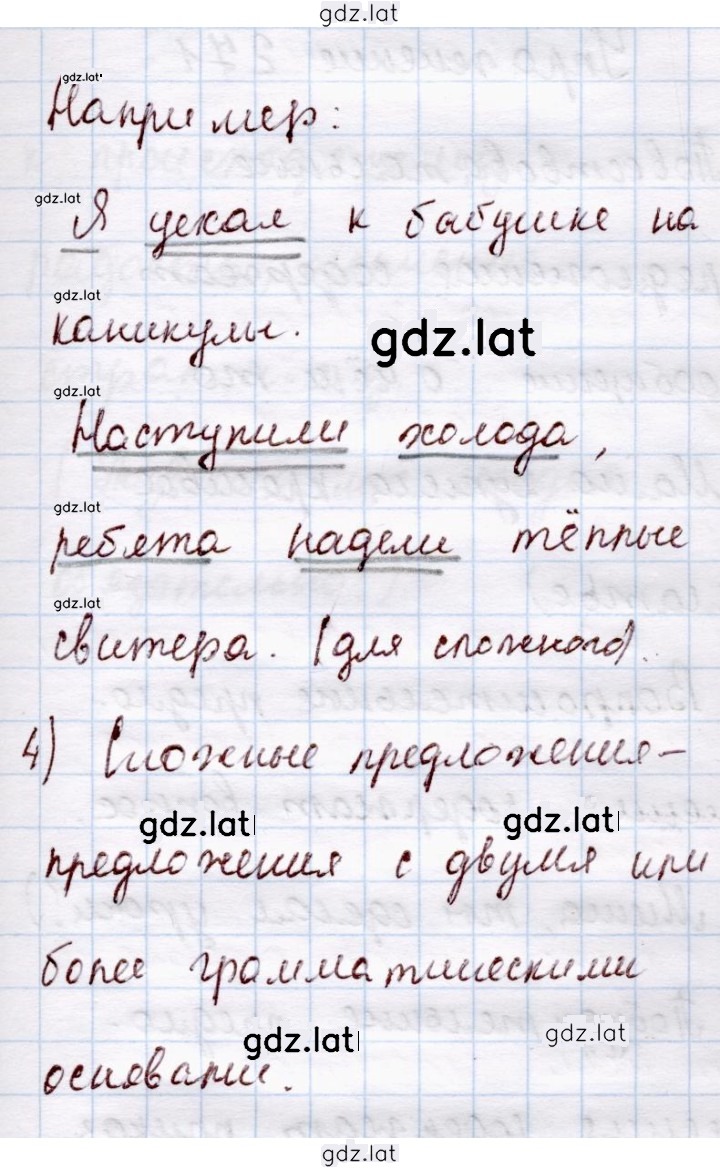 gdz.lat
gdz.lat
Например:
gdz.lat
Я уехал к бабушке на
gdz.lat
каникулы.
gdz.lat
gdz.lat
Наступили холода,
gdz.lat
ребята надели тёплые
gdz.lat
свитера. (для сложного).
4) Сложные предложения –
gdz.lat
gdz.lat
предложения с двумя или
более грамматическими
gdz.lat
gdz.lat
основами.
gdz.lat